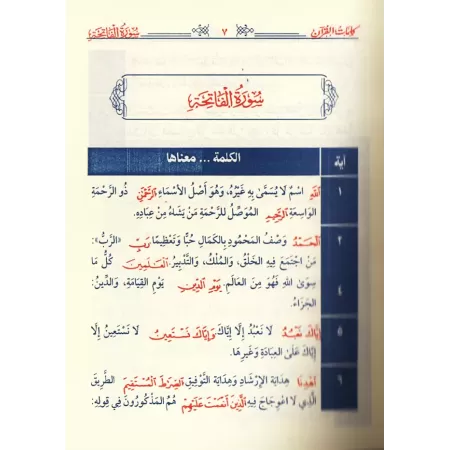 كلمات القرآن ٧ سُورَةُ الْفَاتِحَةِ
سُورَةُ الْفَاتِحَةِ
آية الكلمة ... معناها
١ اللهِ اسْمٌ لَا يُسَمَّى بِهِ غَيْرُهُ، وَهُوَ أَصْلُ الْأَسْمَاءِ الرَّحْمَٰنِ ذُو الرَّحْمَةِ
الْوَاسِعَةِ الرَّحِيمِ الْمُوَصِّلُ لِلرَّحْمَةِ مَنْ يَشَاءُ مِنْ عِبَادِهِ.
٢ الْحَمْدُ وَصْفُ الْمَحْمُودِ بِالْكَمَالِ حُبًّا وَتَعْظِيمًا رَبِّ «الرَّبُّ»:
مَنِ اجْتَمَعَ فِيهِ الْخَلْقُ، وَالْمُلْكُ، وَالتَّدْبِيرُ. الْعَالَمِينَ كُلُّ مَا
٤ سِوَى اللهِ فَهُوَ مِنَ الْعَالَمِ. يَوْمِ الدِّينِ يَوْمِ الْقِيَامَةِ، وَالدِّينُ:
الْجَزَاءُ.
٥ إِيَّاكَ نَعْبُدُ لَا نَعْبُدُ إِلَّا إِيَّاكَ وَإِيَّاكَ نَسْتَعِينُ لَا نَسْتَعِينُ إِلَّا
إِيَّاكَ عَلَى الْعِبَادَةِ وَغَيْرِهَا.
٦ اهْدِنَا هِدَايَةَ الْإِرْشَادِ وَهِدَايَةَ التَّوْفِيقِ الصِّرَاطَ الْمُسْتَقِيمَ الطَّرِيقَ
الَّذِي لَا اعْوِجَاجَ فِيهِ الَّذِينَ أَنْعَمْتَ عَلَيْهِمْ هُمُ الْمَذْكُورُونَ فِي قَوْلِهِ: